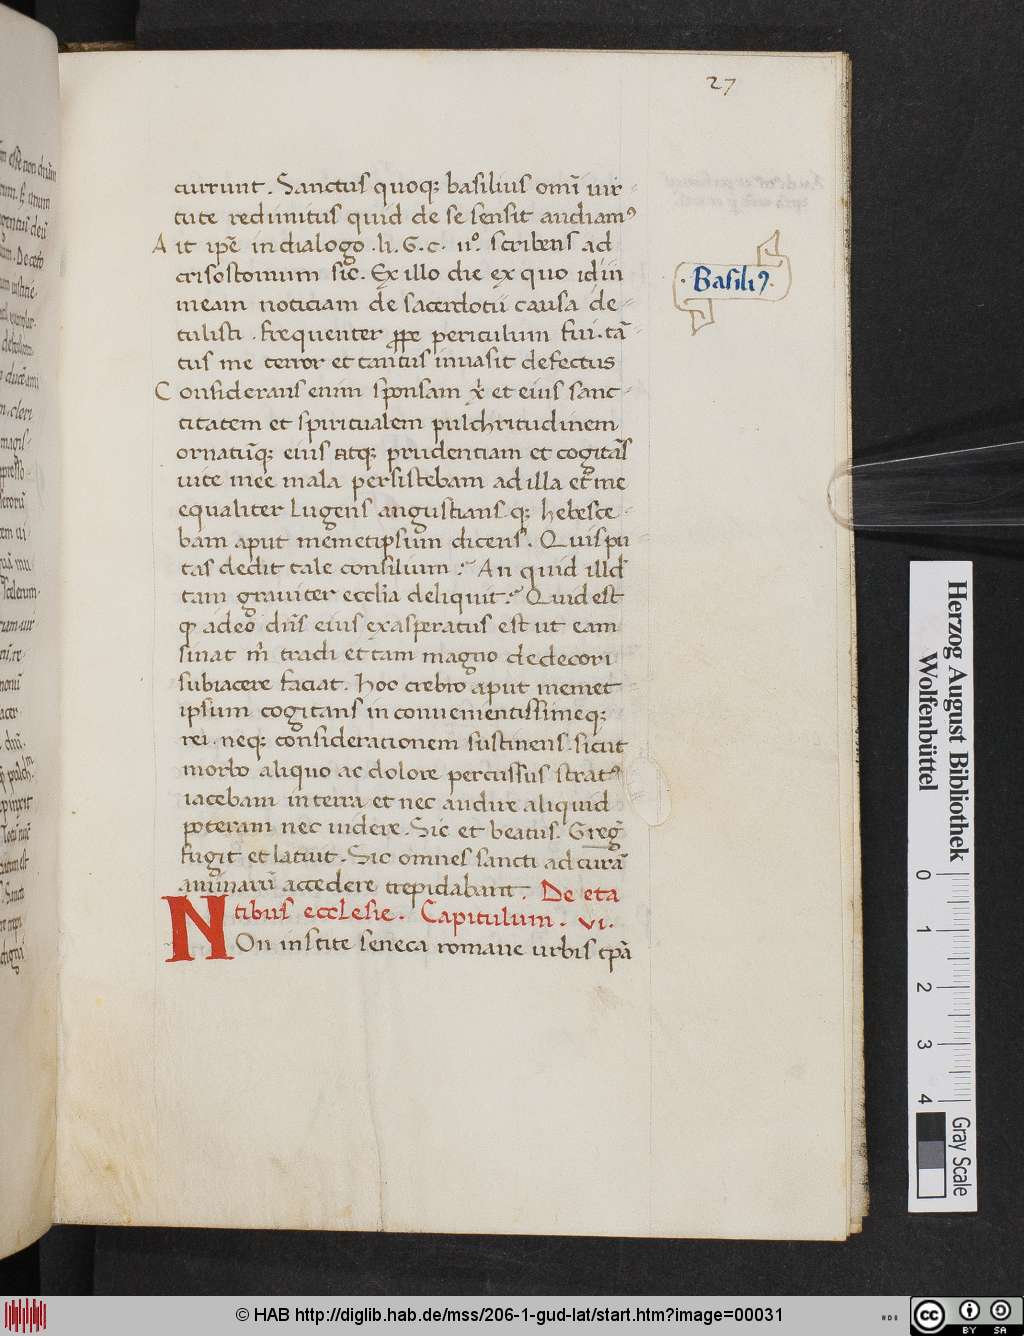 27
currunt. Sanctus quoqꝫ basilius omı̄ uir-
tute redimitus quid de se sensit audiamꝰ
Ait ip̄e in dialogo .li. G. c. iiº. scribens ad
crisostomum sic̄. Ex illo die ex quo id in
meam noticiam de sacerdotii causa de-
tulisti . frequenter ꝓpe periculum fui. tā-
tus me terror et tantus inuasit defectus
Considerans enim sponsam xp̄i et eius sanc-
titatem et spiritualem pulchritudinem
ornatūqꝫ eius atqꝫ prudentiam et cogitās
uite mee mala persistebam ad illa et me
equaliter lugens angustians qꝫ hebesce-
bam aput memetipsum dicens. Quis pu-
tas dedit tale consilium? An quid illd̄
tam grauiter eccl̄ia deliquit? Quid est
qꝫ adeo dn̄s eius exasperatus est ut eam
sinat m̄ tradi et tam magno dedecori
subiacere faciat. hoc crebro aput memet-
ipsum cogitans inconuenientissimeqꝫ
rei neqꝫ considerationem sustinens. sicut
morbo aliquo ac dolore percussus stratꝰ
iacebam in terra et nec audire aliquid
poteram nec uidere. Sic et beatus. Greg̃
fugit et latuit. Sic omnes sancti ad curā
animarū accedere trepidabant. De eta
tibus ecclesie. Capitulum. vi.
NOn inscite seneca romane urbis tp̄a
.Basiliꝰ.
Herzog August Bibliothek
Wolfenbüttel
0 1 2 3 4
Gray Scale
© HAB http://diglib.hab.de/mss/206-1-gud-lat/start.htm?image=00031
cc BY SA